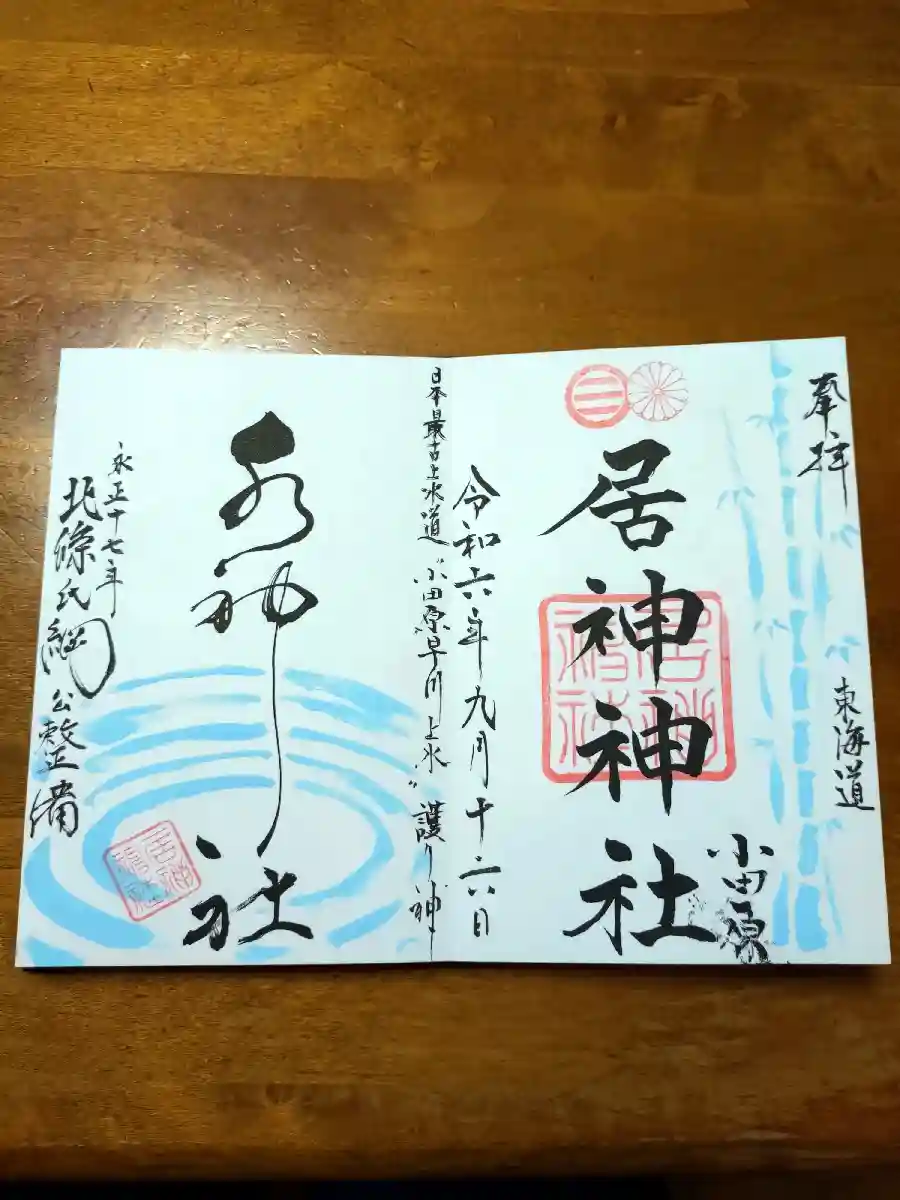 奉拝
東海道
小田原
居神神社
居神神社
令和六年九月十六日
日本最古上水道“小田原早川上水”護り神
水神社
居神神社
永正十七年
北條氏綱公整備